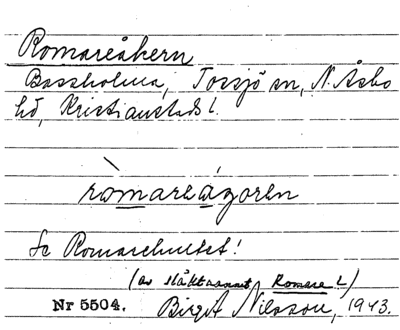 Romareåkern
Bassholma, Torsjö sn, N. Åsbo
hd, Kristianstads l.
ròmareágoren
Se Romarehultet!
(av släktnamnet Romare l.)
Nr 5504. Birgit Nilsson, 1943.